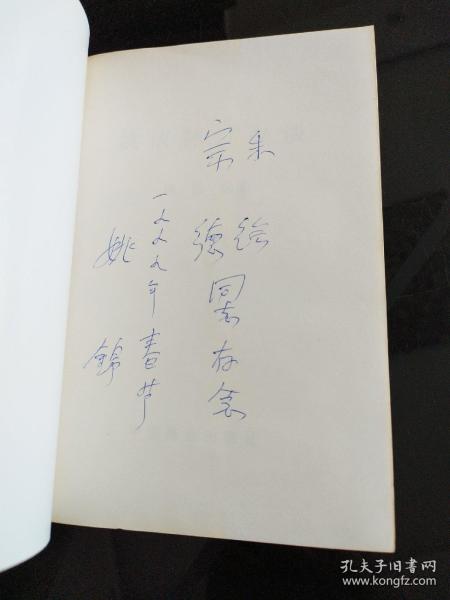 宗德同志存念
一九九九年春节
姚锦
孔夫子旧书网
www.kongfz.com